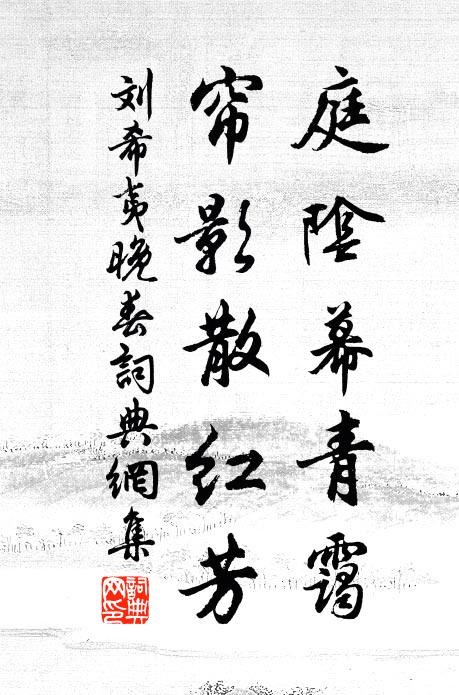 庭陰幕青靄
帘影散红芳
刘希夷晚春詞典網集
詞典网印